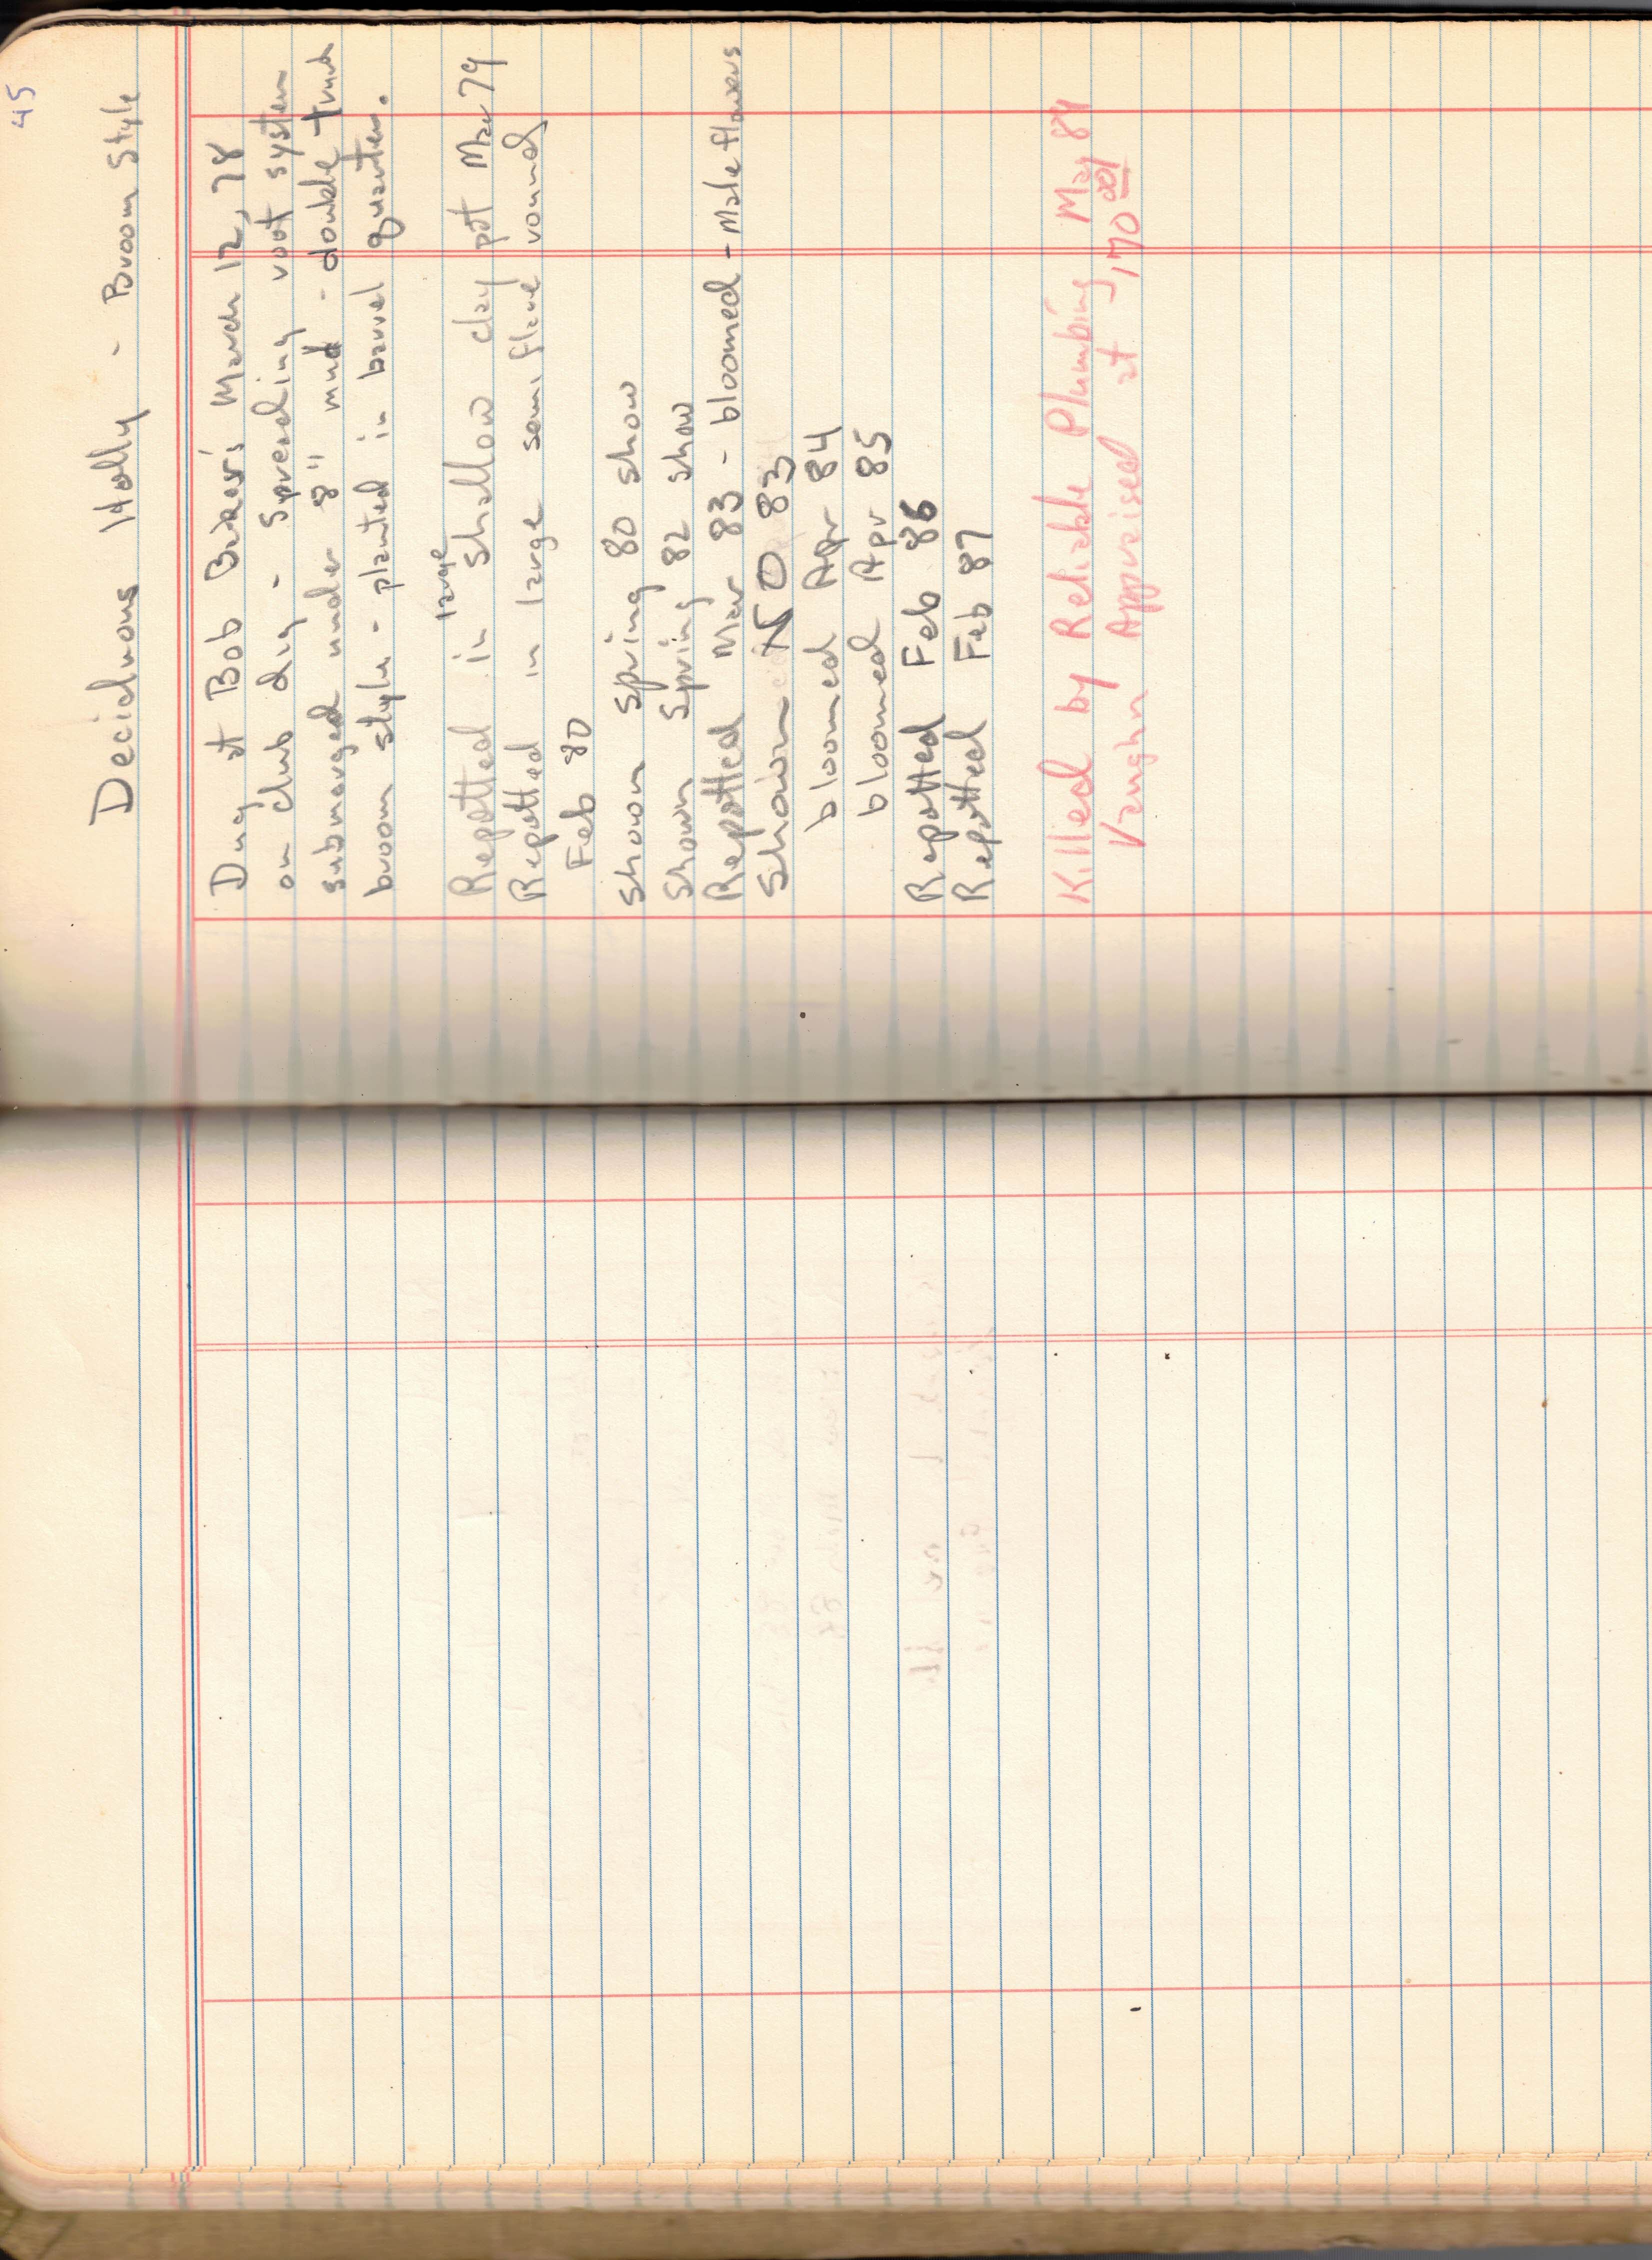 45
Deciduous Holly - Broom Style
Dug at Bob Baker's March 12, 78
on club dig - Spreading root system
submerged under 8" mud - double trunk
broom style - planted in barrel quarter.
large
Repotted in shallow clay pot Mar 79
Repotted in large semi flare round
Feb 80
Shown spring 80 show
Shown Spring 82 show
Repotted Mar 83 - bloomed - Male flowers
Shown NO 83
bloomed Apr 84
bloomed Apr 85
Repotted Feb 86
Repotted Feb 87
Killed by Reliable Plumbing
Vaughn Appraised at 170 00